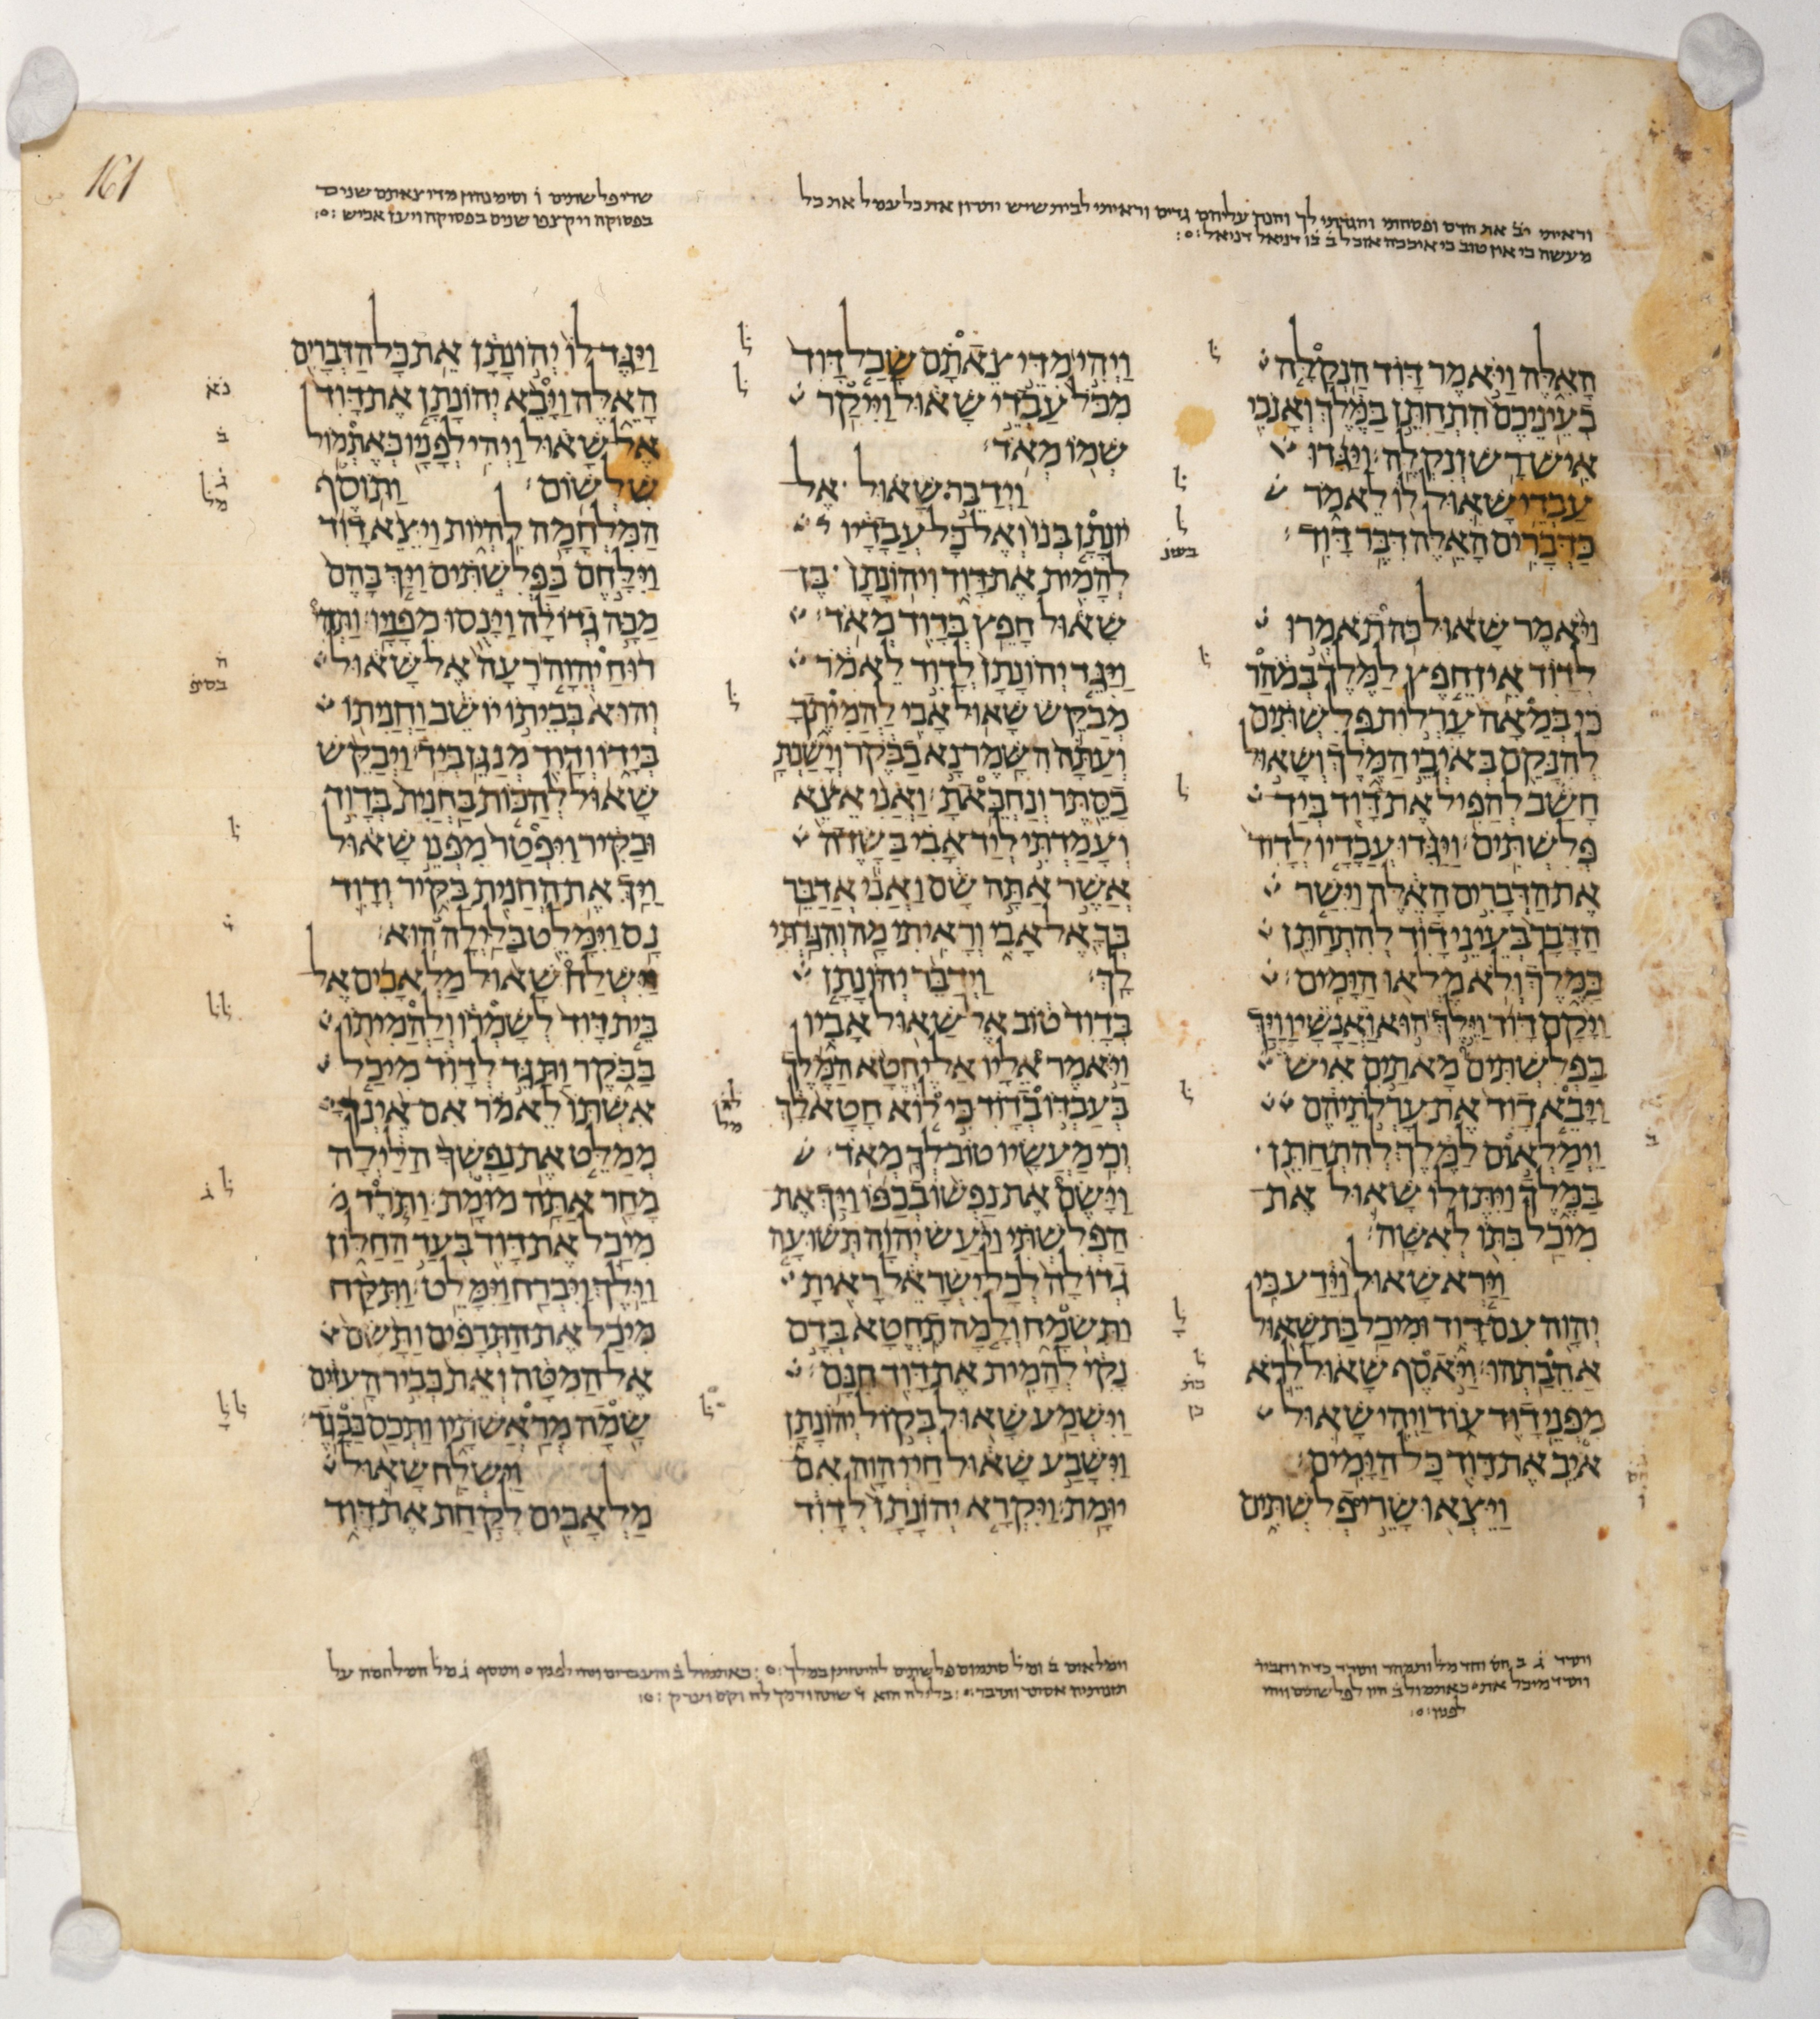 וראיתי יב את הדם ופסחתי והגדתי לך ונתן עליהם גדים וראיתי לבית שיש יתרון את כל עמל את כל
מעשה כי אין טוב כי איככה אוכל ב בו דניאל דניאל
שרי פלשתים ו וסימנהון מדי צאתם שנים
בפסוקה ויקצפו שנים בפסוקה ויעז אכיש
הָאֵלֶּה וַיֹּאמֶר דָּוִד הַנְקַלָּה
בְעֵינֵיכֶם הִתְחַתֵּן בַּמֶּלֶךְ וְאָנֹכִי
אִישׁ רָשׁ וְנִקְלֶה׃ וַיַּגִּדוּ
עַבְדֵי שָׁאוּל לוֹ לֵאמֹר
כַּדְּבָרִים הָאֵלֶּה דִּבֶּר דָּוִד׃
וַיֹּאמֶר שָׁאוּל כֹּה תֹאמְרוּ
לְדָוִד אֵין חֵפֶץ לַמֶּלֶךְ בְּמֹהַר
כִּי בְּמֵאָה עָרְלוֹת פְּלִשְׁתִּים
לְהִנָּקֵם בְּאֹיְבֵי הַמֶּלֶךְ וְשָׁאוּל
חָשַׁב לְהַפִּיל אֶת דָּוִד בְּיַד
פְּלִשְׁתִּים׃ וַיַּגִּדוּ עֲבָדָיו לְדָוִד
אֶת הַדְּבָרִים הָאֵלֶּה וַיִּשַׁר
הַדָּבָר בְּעֵינֵי דָוִד לְהִתְחַתֵּן
בַּמֶּלֶךְ וְלֹא מָלְאוּ הַיָּמִים׃
וַיָּקָם דָּוִד וַיֵּלֶךְ הוּא וַאֲנָשָׁיו וַיַּךְ
בַּפְּלִשְׁתִּים מָאתַיִם אִישׁ
וַיָּבֵא דָוִד אֶת עָרְלֹתֵיהֶם
וַיְמַלְאוּם לַמֶּלֶךְ לְהִתְחַתֵּן
בַּמֶּלֶךְ וַיִּתֶּן לוֹ שָׁאוּל אֶת
מִיכַל בִּתּוֹ לְאִשָּׁה׃
וַיַּרְא שָׁאוּל וַיֵּדַע כִּי
יְהוָה עִם דָּוִד וּמִיכַל בַּת שָׁאוּל
אֲהֵבַתְהוּ׃ וַיֹּאסֶף שָׁאוּל לֵרֹא
מִפְּנֵי דָוִד עוֹד וַיְהִי שָׁאוּל
אֹיֵב אֶת דָּוִד כָּל הַיָּמִים׃
וַיֵּצְאוּ שָׂרֵי פְלִשְׁתִּים
וַיְהִי מִדֵּי צֵאתָם שָׂכַל דָּוִד
מִכֹּל עַבְדֵי שָׁאוּל וַיִּיקַר
שְׁמוֹ מְאֹד׃
וַיְדַבֵּר שָׁאוּל אֶל
יוֹנָתָן בְּנוֹ וְאֶל כָּל עֲבָדָיו
לְהָמִית אֶת דָּוִד וִיהוֹנָתָן בֶּן
שָׁאוּל חָפֵץ בְּדָוִד מְאֹד׃
וַיַּגֵּד יְהוֹנָתָן לְדָוִד לֵאמֹר
מְבַקֵּשׁ שָׁאוּל אָבִי לַהֲמִיתֶךָ
וְעַתָּה הִשָּׁמֶר נָא בַבֹּקֶר וְיָשַׁבְתָּ
בַסֵּתֶר וְנַחְבֵּאתָ׃ וַאֲנִי אֵצֵא
וְעָמַדְתִּי לְיַד אָבִי בַּשָּׂדֶה
אֲשֶׁר אַתָּה שָׁם וַאֲנִי אֲדַבֵּר
בְּךָ אֶל אָבִי וְרָאִיתִי מָה וְהִגַּדְתִּי
לָךְ׃ וַיְדַבֵּר יְהוֹנָתָן
בְּדָוִד טוֹב אֶל שָׁאוּל אָבִיו
וַיֹּאמֶר אֵלָיו אַל יֶחֱטָא הַמֶּלֶךְ
בְּעַבְדּוֹ בְדָוִד כִּי לוֹא חָטָא לָךְ
וְכִי מַעֲשָׂיו טוֹב לְךָ מְאֹד׃
וַיָּשֶׂם אֶת נַפְשׁוֹ בְכַפּוֹ וַיַּךְ אֶת
הַפְּלִשְׁתִּי וַיַּעַשׂ יְהוָה תְּשׁוּעָה
גְדוֹלָה לְכָל יִשְׂרָאֵל רָאִיתָ
וַתִּשְׂמָח וְלָמָּה תֶחֱטָא בְּדָם
נָקִי לְהָמִית אֶת דָּוִד חִנָּם׃
וַיִּשְׁמַע שָׁאוּל בְּקוֹל יְהוֹנָתָן
וַיִּשָּׁבַע שָׁאוּל חַי יְהוָה אִם
יוּמָת׃ וַיִּקְרָא יְהוֹנָתָן לְדָוִד
וַיַּגֶּד לוֹ יְהוֹנָתָן אֵת כָּל הַדְּבָרִים
הָאֵלֶּה וַיָּבֵא יְהוֹנָתָן אֶת דָּוִד
אֶל שָׁאוּל וַיְהִי לְפָנָיו כְּאֶתְמוֹל
שִׁלְשׁוֹם׃ וַתּוֹסֶף
הַמִּלְחָמָה לִהְיוֹת וַיֵּצֵא דָוִד
וַיִּלָּחֶם בַּפְּלִשְׁתִּים וַיַּךְ בָּהֶם
מַכָּה גְדוֹלָה וַיָּנֻסוּ מִפָּנָיו׃ וַתְּהִי
רוּחַ יְהוָה רָעָה אֶל שָׁאוּל
וְהוּא בְּבֵיתוֹ יוֹשֵׁב וַחֲנִיתוֹ
בְּיָדוֹ וְדָוִד מְנַגֵּן בְּיָד׃ וַיְבַקֵּשׁ
שָׁאוּל לְהַכּוֹת בַּחֲנִית בְּדָוִד
וּבַקִּיר וַיִּפְטַר מִפְּנֵי שָׁאוּל
וַיַּךְ אֶת הַחֲנִית בַּקִּיר וְדָוִד
נָס וַיִּמָּלֵט בַּלַּיְלָה הוּא׃
וַיִּשְׁלַח שָׁאוּל מַלְאָכִים אֶל
בֵּית דָּוִד לְשָׁמְרוֹ וְלַהֲמִיתוֹ
בַּבֹּקֶר וַתַּגֵּד לְדָוִד מִיכַל
אִשְׁתּוֹ לֵאמֹר אִם אֵינְךָ
מְמַלֵּט אֶת נַפְשְׁךָ הַלַּיְלָה
מָחָר אַתָּה מוּמָת׃ וַתֹּרֶד
מִיכַל אֶת דָּוִד בְּעַד הַחַלּוֹן
וַיֵּלֶךְ וַיִּבְרַח וַיִּמָּלֵט׃ וַתִּקַּח
מִיכַל אֶת הַתְּרָפִים וַתָּשֶׂם
אֶל הַמִּטָּה וְאֵת כְּבִיר הָעִזִּים
שָׂמָה מְרַאֲשֹׁתָיו וַתְּכַס בַּבָּגֶד׃
וַיִּשְׁלַח שָׁאוּל
מַלְאָכִים לָקַחַת אֶת דָּוִד
ותרד מיכל את כאתמול ב היו לפלשתים ויהי
לפניו
וימלאום ב ומל סתמום פלשתים להתחתן במלך כאתמול ב והעברים ויהי לפניו ותוסף ג מל המלחמה על
161